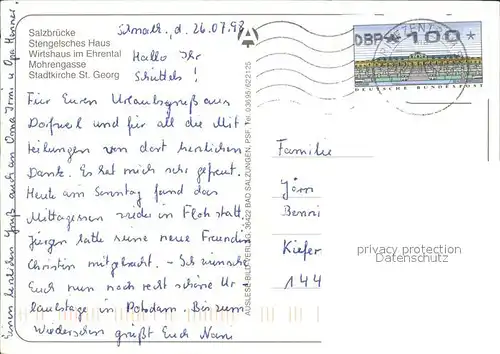 Salzbrücke
Stengelsches Haus
Wirtshaus im Ehrental
Mohrengasse
Stadtkirche St. Georg
d. 26.07.98
Hallo Ihr
Schüttels!
Für Euren Urlaubsgruß aus
Dorfweil und für all die Mit
teilungen von dort herzlichen
Dank. Es hat mich sehr gefreut.
Heute am Sonntag fand das
Mittagessen wieder in Floh statt.
Jürgen hatte seine neue Freundin
Christin mitgebracht. - Ich wünsche
Euch nun noch recht schöne Ur
laubstage in Potsdam. Bis zum
Wiedersehen grüßt Euch Nani
Einen herzlichen Gruß auch an Oma Irmi u Opa Henner!
AUSLESE-BILD-VERLAG, 36422 BAD SALZUNGEN, PSF, Tel. 03695/622125
DBP * 100 *
DEUTSCHE BUNDESPOST
BRIEFZENTRUM
Familie
Jörn
Benni
Kiefer
144
privacy protection
Datenschutz